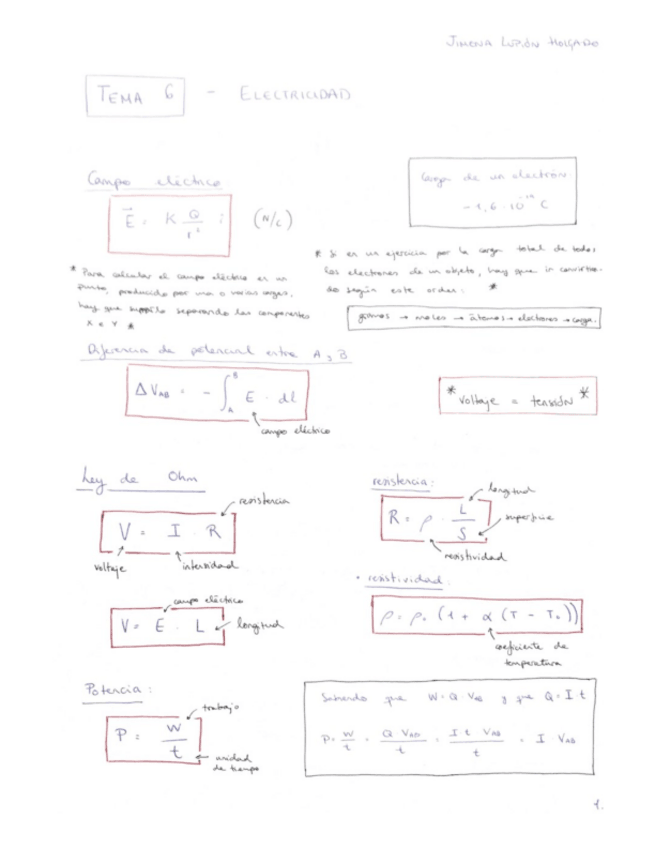 JIMENA LUPIÓN HOLGADO
TEMA 6 - ELECTRICIDAD
Campo eléctrico:
E = K Q/r² i (N/C)
Carga de un electrón
-1,6 · 10⁻¹⁹ C
* Para calcular el campo eléctrico en un
punto, producido por una o varias cargas,
hay que separando las componentes
X e Y *
* Si en un ejercicio por la carga total de todos
los electrones de un objeto, hay que ir convirtien-
do según este orden: *
gramos → moles → átomos → electrones → carga.
Diferencia de potencial entre A y B
ΔV_AB = - ∫_A^B E · dl
campo eléctrico
* Voltaje = tensión *
Ley de Ohm
resistencia
V = I · R
voltaje intensidad
campo eléctrico
V = E · L longitud
resistencia:
longitud
R = ρ · L/S superficie
resistividad
· resistividad:
ρ = ρ₀ (1 + α (T - T₀))
coeficiente de
temperatura
Potencia:
trabajo
P = W/t
unidad
de tiempo
Sabiendo que W = Q · V_AB y que Q = I · t
P = W/t = Q · V_AB/t = I · t · V_AB/t = I · V_AB
1.